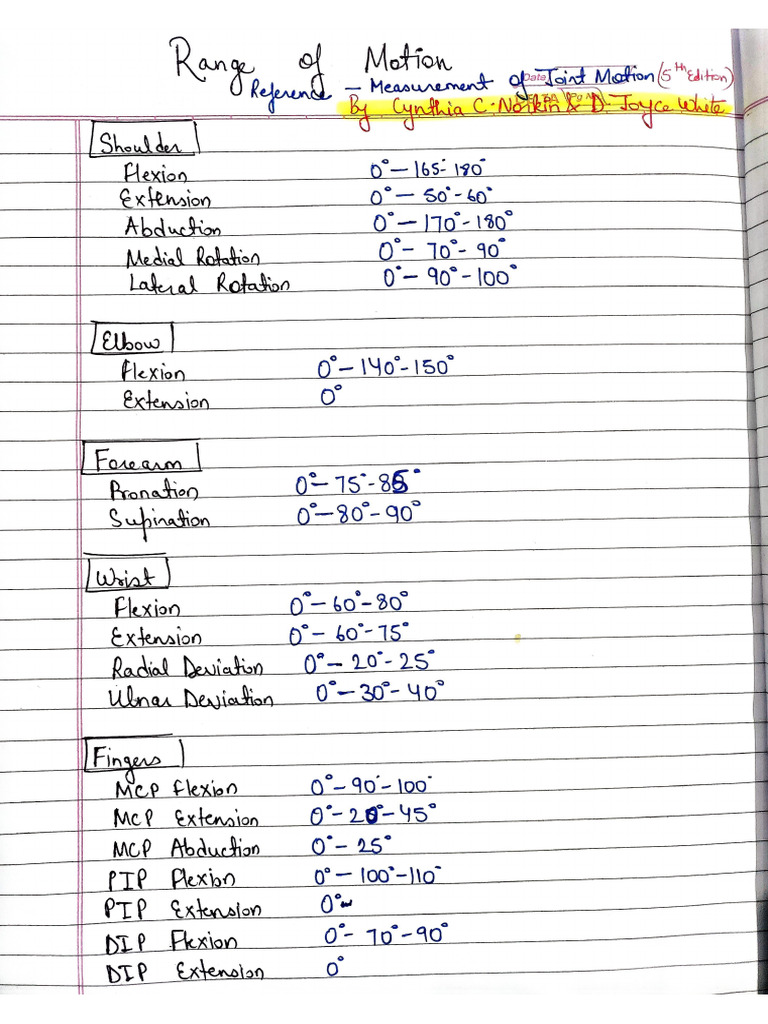 Range of Motion
Reference - Measurement of Joint Motion (5th Edition)
By Cynthia C. Norkin & D. Joyce White
Shoulder
Flexion 0°-165°-180°
Extension 0°-50°-60°
Abduction 0°-170°-180°
Medial Rotation 0°-70°-90°
Lateral Rotation 0°-90°-100°
Elbow
Flexion 0°-140°-150°
Extension 0°
Forearm
Pronation 0°-75°-85°
Supination 0°-80°-90°
Wrist
Flexion 0°-60°-80°
Extension 0°-60°-75°
Radial Deviation 0°-20°-25°
Ulnar Deviation 0°-30°-40°
Fingers
MCP Flexion 0°-90°-100°
MCP Extension 0°-20°-45°
MCP Abduction 0°-25°
PIP Flexion 0°-100°-110°
PIP Extension 0°
DIP Flexion 0°-70°-90°
DIP Extension 0°